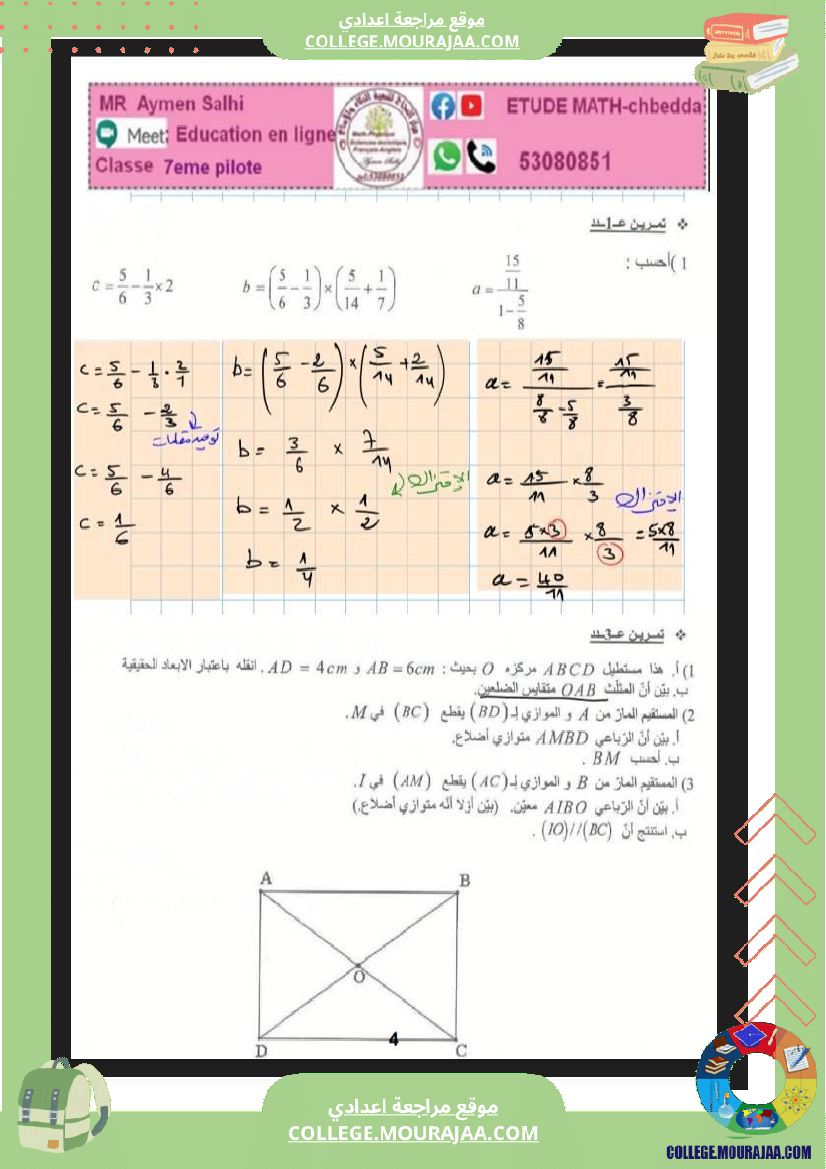 موقع مراجعة اعدادي
COLLEGE.MOURAJAA.COM
MR Aymen Salhi
Meet: Education en ligne
Classe 7eme pilote
ETUDE MATH-chbedda
53080851
❖ تمرين عـ1ـدد
1 )أحسب :
a = (15/11)/(1-5/8)
b = (5/6 - 1/3) × (5/14 + 1/7)
c = 5/6 - 1/3 × 2
a = (15/11)/(8/8 - 5/8) = (15/11)/(3/8)
a = 15/11 × 8/3
الإختزال
a = 5×3/11 × 8/3 = 5×8/11
a = 40/11
b = (5/6 - 2/6) × (5/14 + 2/14)
b = 3/6 × 7/14
الإختزال
b = 1/2 × 1/2
b = 1/4
c = 5/6 - 1/3 · 2/1
c = 5/6 - 2/3
توحيد مقامات
c = 5/6 - 4/6
c = 1/6
❖ تمرين عـ3ـدد
1) أ. هذا مستطيل ABCD مركزه O بحيث : AB = 6cm و AD = 4cm . انقله باعتبار الابعاد الحقيقية
ب. بيّن أنّ المثلّث OAB متقايس الضلعين.
2) المستقيم المارّ من A و الموازي لـ (BD) يقطع (BC) في M.
أ. بيّن أنّ الرّباعي AMBD متوازي أضلاع.
ب. أحسب BM .
3) المستقيم المارّ من B و الموازي لـ (AC) يقطع (AM) في I.
أ. بيّن أنّ الرّباعي AIBO معيّن. (بيّن أوّلا أنّه متوازي أضلاع.)
ب. استنتج أنّ (IO)//(BC) .
A
B
O
D
4
C
موقع مراجعة اعدادي
COLLEGE.MOURAJAA.COM
COLLEGE.MOURAJAA.COM